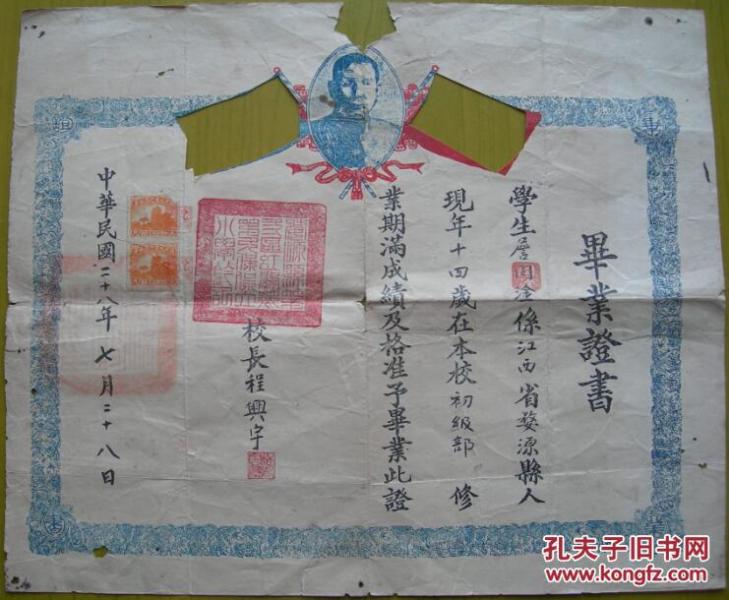 畢業證書
學生詹固塗係江西省婺源縣人
現年十四歲在本校初級部修
業期滿成績及格准予畢業此證
校長程興宇
中華民國二十八年七月二十八日
孔夫子旧书网
www.kongfz.com